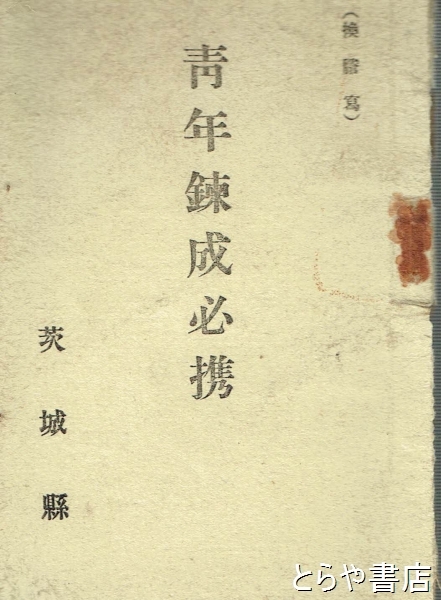 （換謄寫）
青年錬成必携
茨城縣
とらや書店